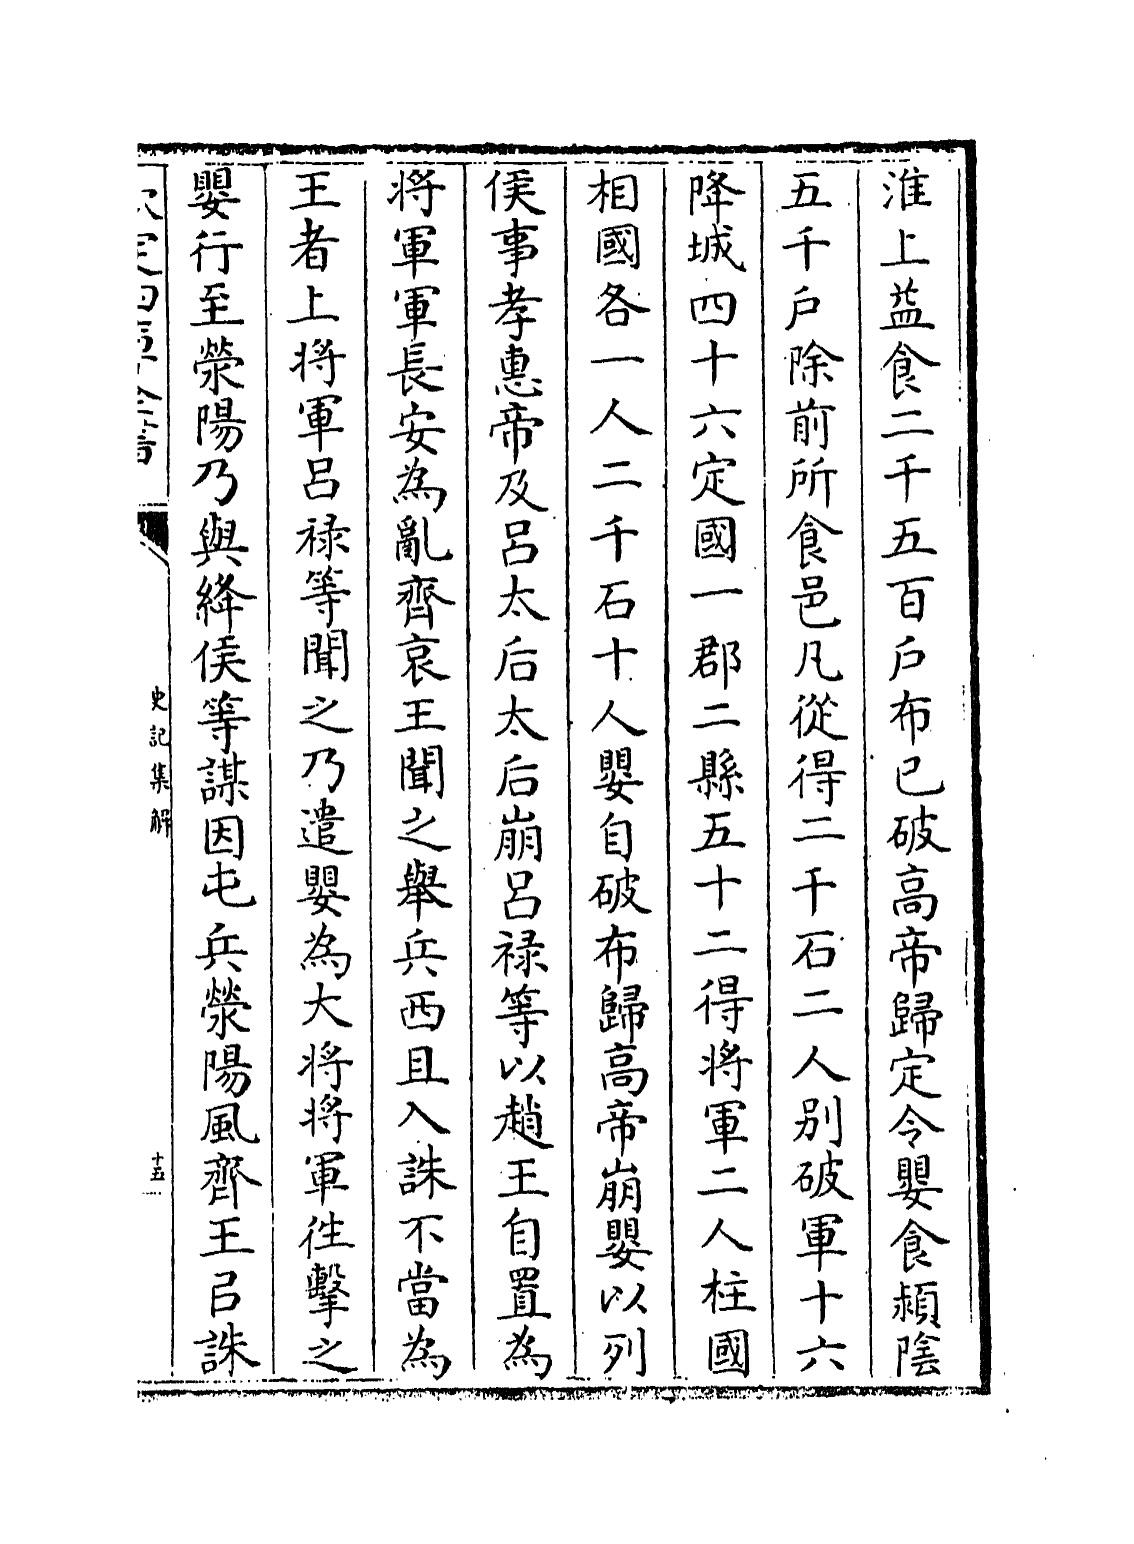 淮上益食二千五百戶布已破高帝歸定令嬰食潁陰
五千戶除前所食邑凡從得二千石二人別破軍十六
降城四十六定國一郡二縣五十二得將軍二人柱國
相國各一人二千石十人嬰自破布歸高帝崩嬰以列
侯事孝惠帝及呂太后太后崩呂祿等以趙王自置為
將軍軍長安為亂齊哀王聞之舉兵西且入誅不當為
王者上將軍呂祿等聞之乃遣嬰為大將將軍往擊之
嬰行至滎陽乃與絳侯等謀因屯兵滎陽風齊王㠯誅
欽定四庫全書
史記集解
十五